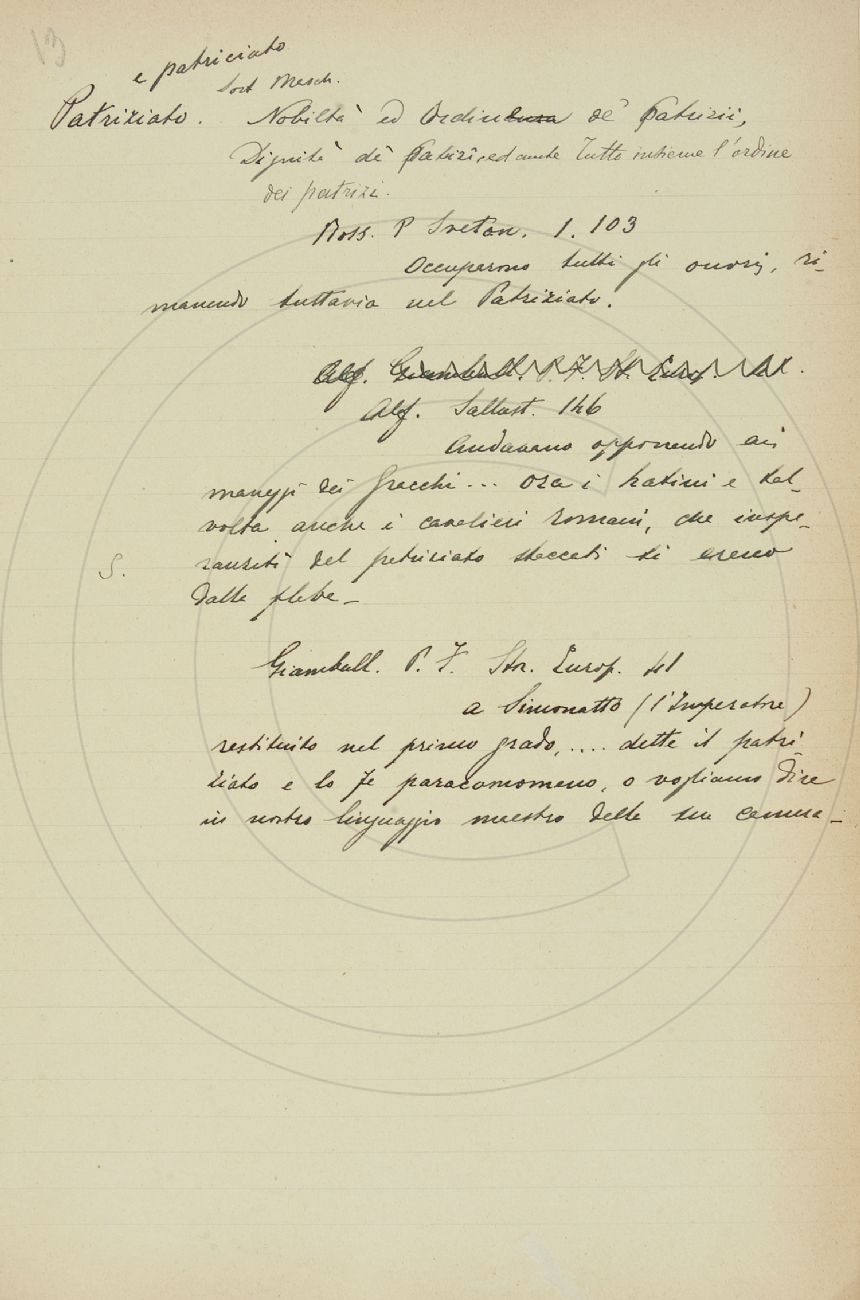 13
e patriciato
Sost. Masch.
Patriziato. Nobiltà ed Ordinanza de' Patrizii,
Dignità de' Patrizi, ed anche tutto insieme l'ordine
dei patrizi.
Ross. P Sveton. 1. 103
Occuparono tutti gli onori, ri-
manendo tuttavia nel Patriziato.
Alf. Giambull. P. F. St. Europ.
Alf. Sallust. 146
Andavano opponendo ai
maneggi dei Gracchi... ora i Latini e tal-
volta anche i cavalieri romani, che inspe-
ranziti del patriziato staccati si erano
S.
dalla plebe_
Giambull. P. F. Stor. Europ. 41
a Simonatto (l'Imperatore)
restituito nel primo grado, .... dette il patri-
ziato e lo fe paracomomeno, o vogliamo dire
in nostro linguaggio maestro della sua camera_